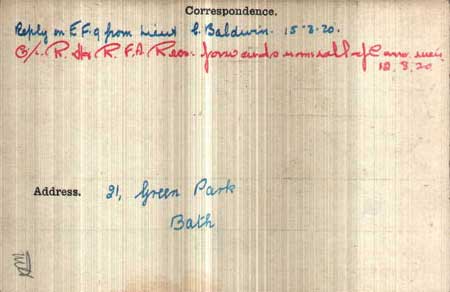 Correspondence.
Reply on E.F.9 from Lieut C. Baldwin. 15.3.20.
O/c. R. H & R. F. A. Recs. forwards nom roll of
12.3.20
Address. 21, Green Park
Bath